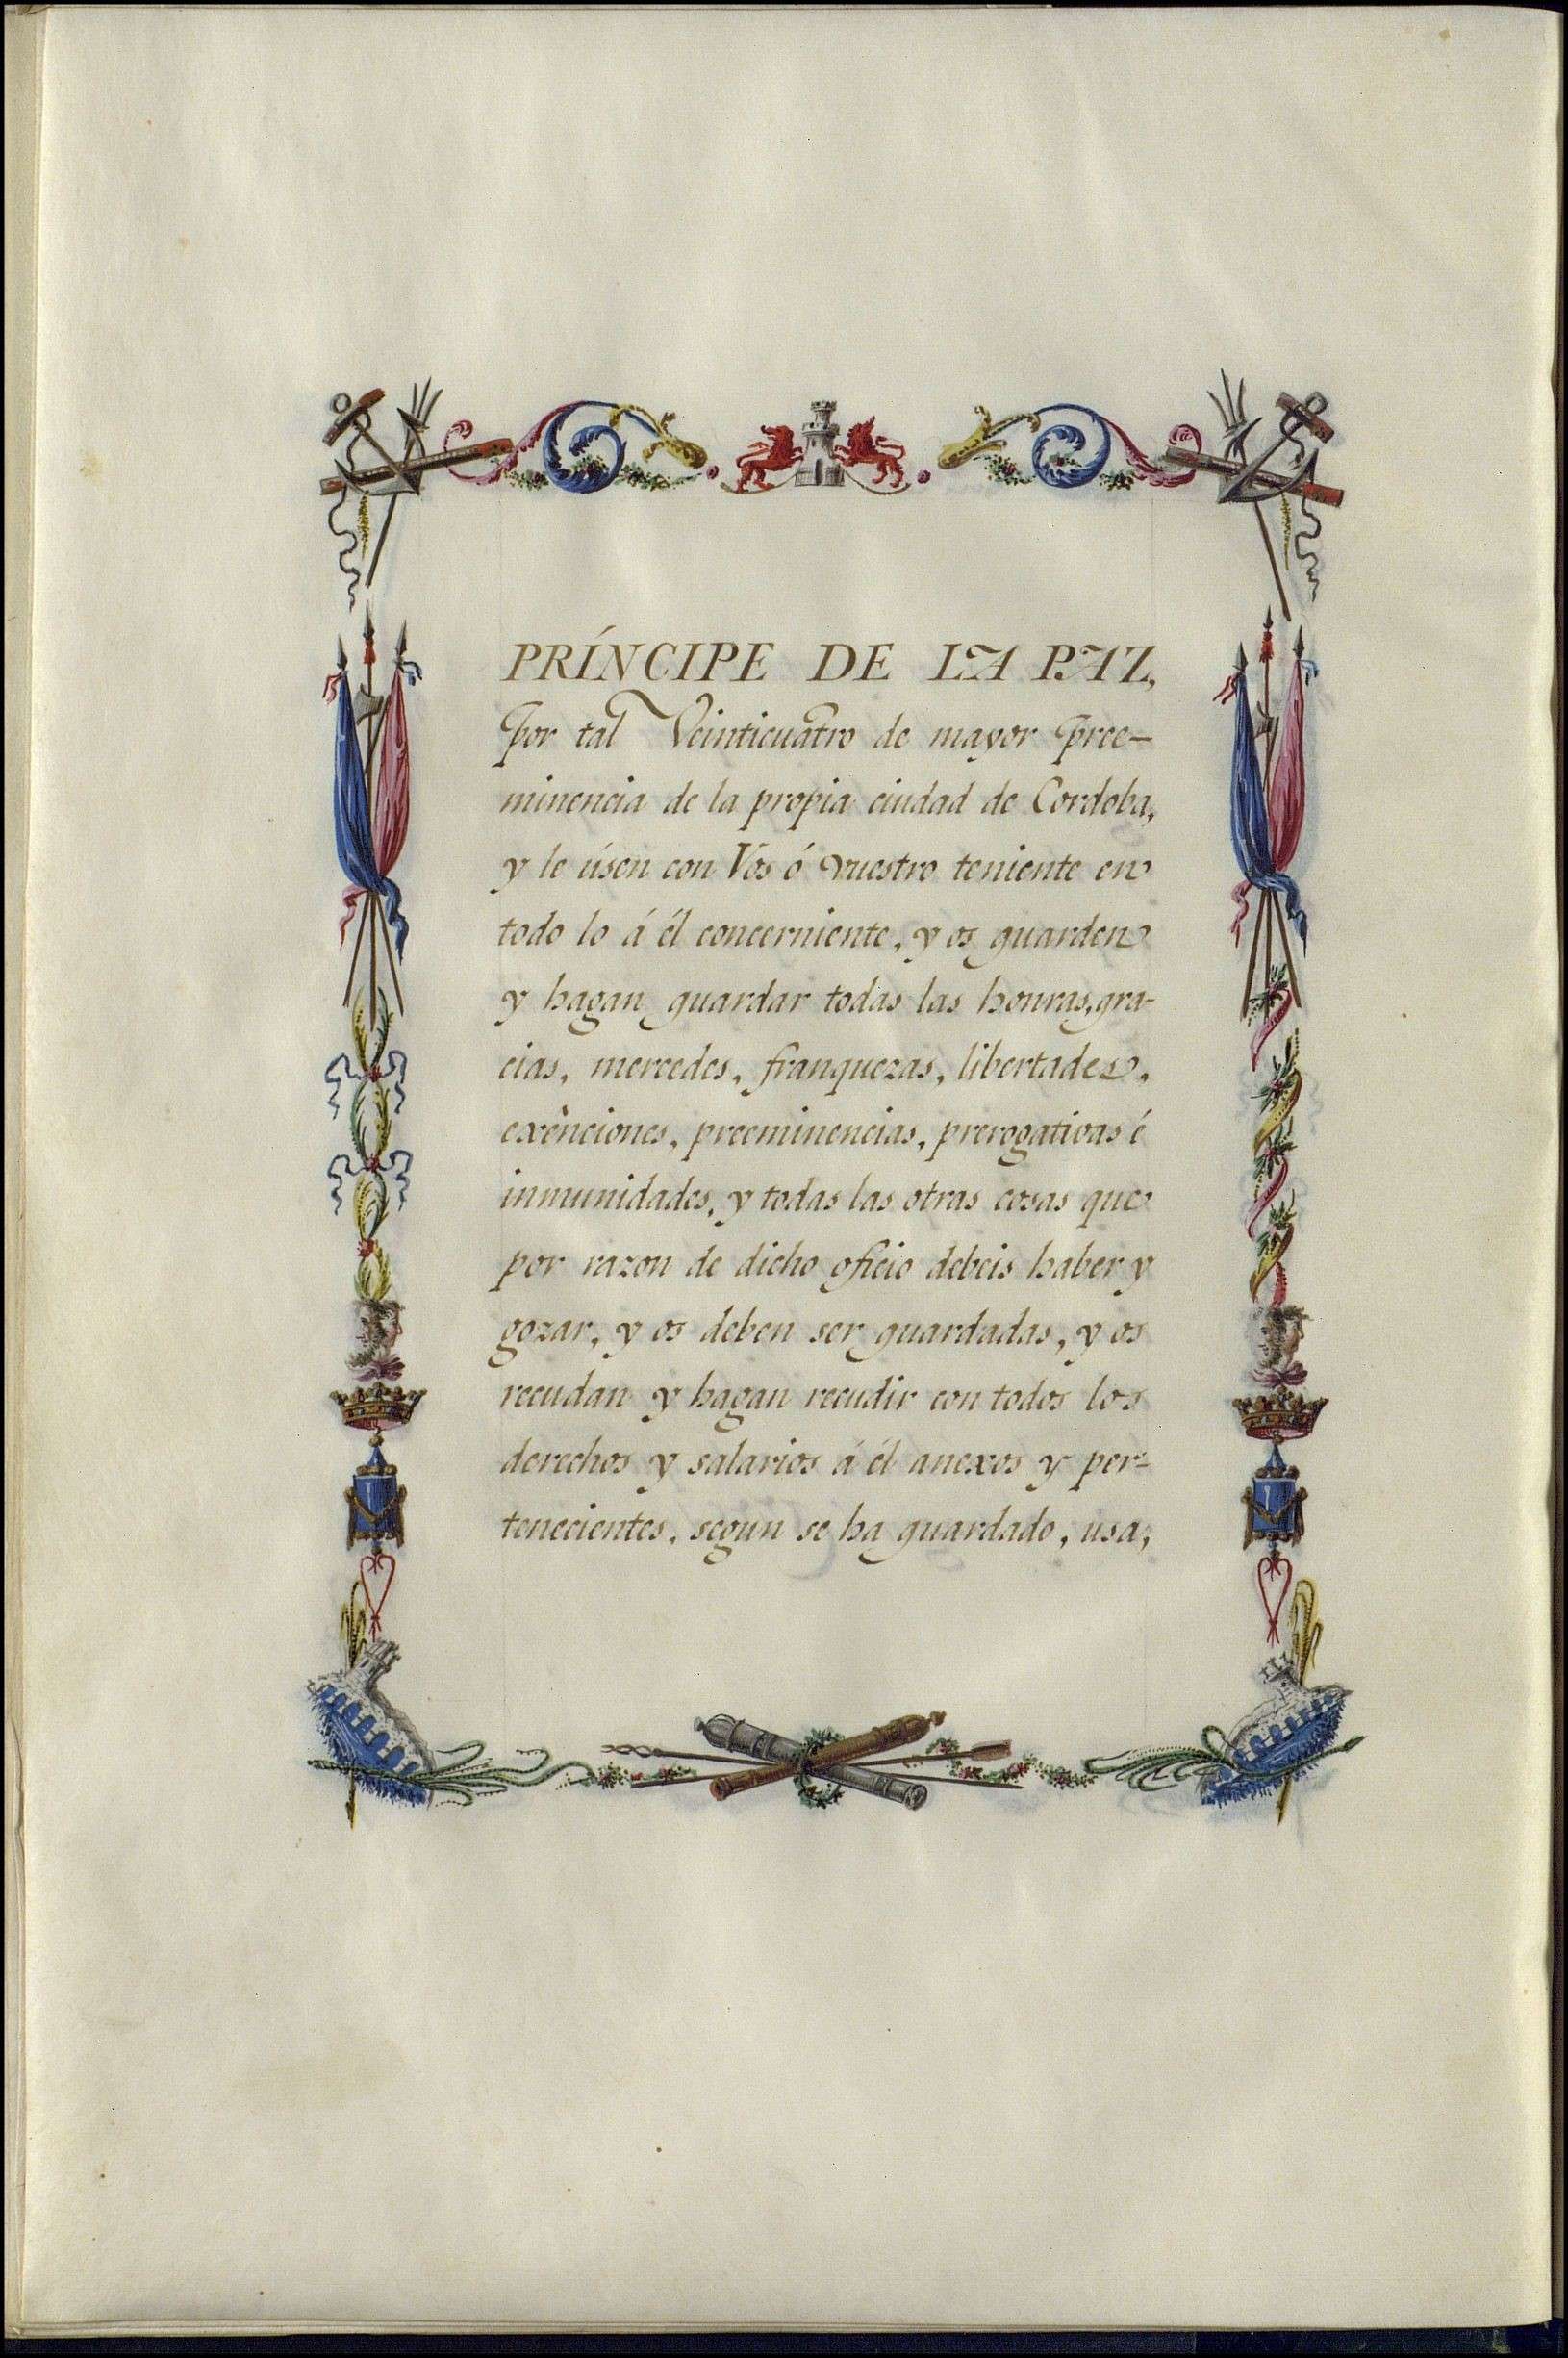 PRÍNCIPE DE LA PAZ,
por tal Veinticuatro de mayor pree-
minencia de la propia ciudad de Cordoba,
y le úsen con Vos ó vuestro teniente en
todo lo á él concerniente, y os guarden
y hagan guardar todas las honras, gra-
cias, mercedes, franquezas, libertades,
exênciones, preeminencias, prerogativas é
inmunidades, y todas las otras cosas que
por razon de dicho oficio debeis haber y
gozar, y os deben ser guardadas, y os
recudan y hagan recudir con todos los
derechos y salarios á él anexos y per-
tenecientes, segun se ha guardado, usa,